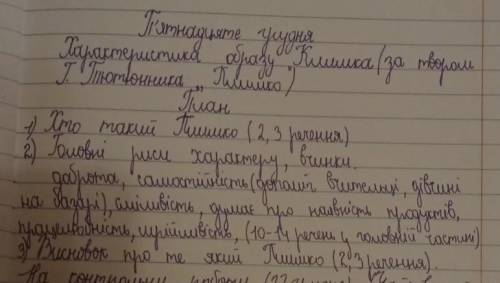 П'ятнадцяте грудня
Характеристика образу Климка (за твором
Г. Тютюнника "Климко")
План
1) Хто такий Климко (2,3 речення)
2) Головні риси характеру, вчинки.
доброта, самостійність (допоміг вчительці, дівчині
на базарі), сміливість, думає про наявність продуктів,
працьовитість, мрійливість, (10-14 речень у головній частині)
3) Висновок про те який Климко (2,3 речення).
На контрольну роботу